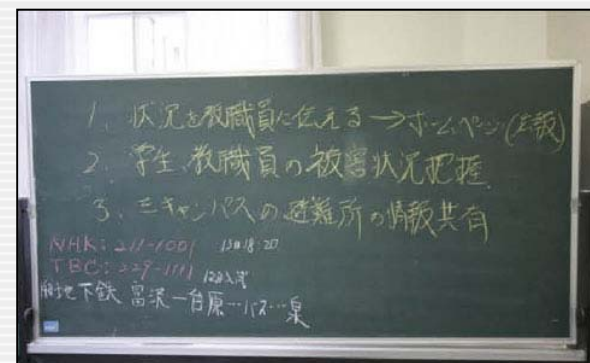 1、状況を教職員に伝える→ホームページ(広報)
2、学生、教職員の被害状況把握
3、三キャンパスの避難所の情報共有
NHK:211-1001 13日18:20
TBC:229-1111
地下鉄 富沢ー台原…バス…泉